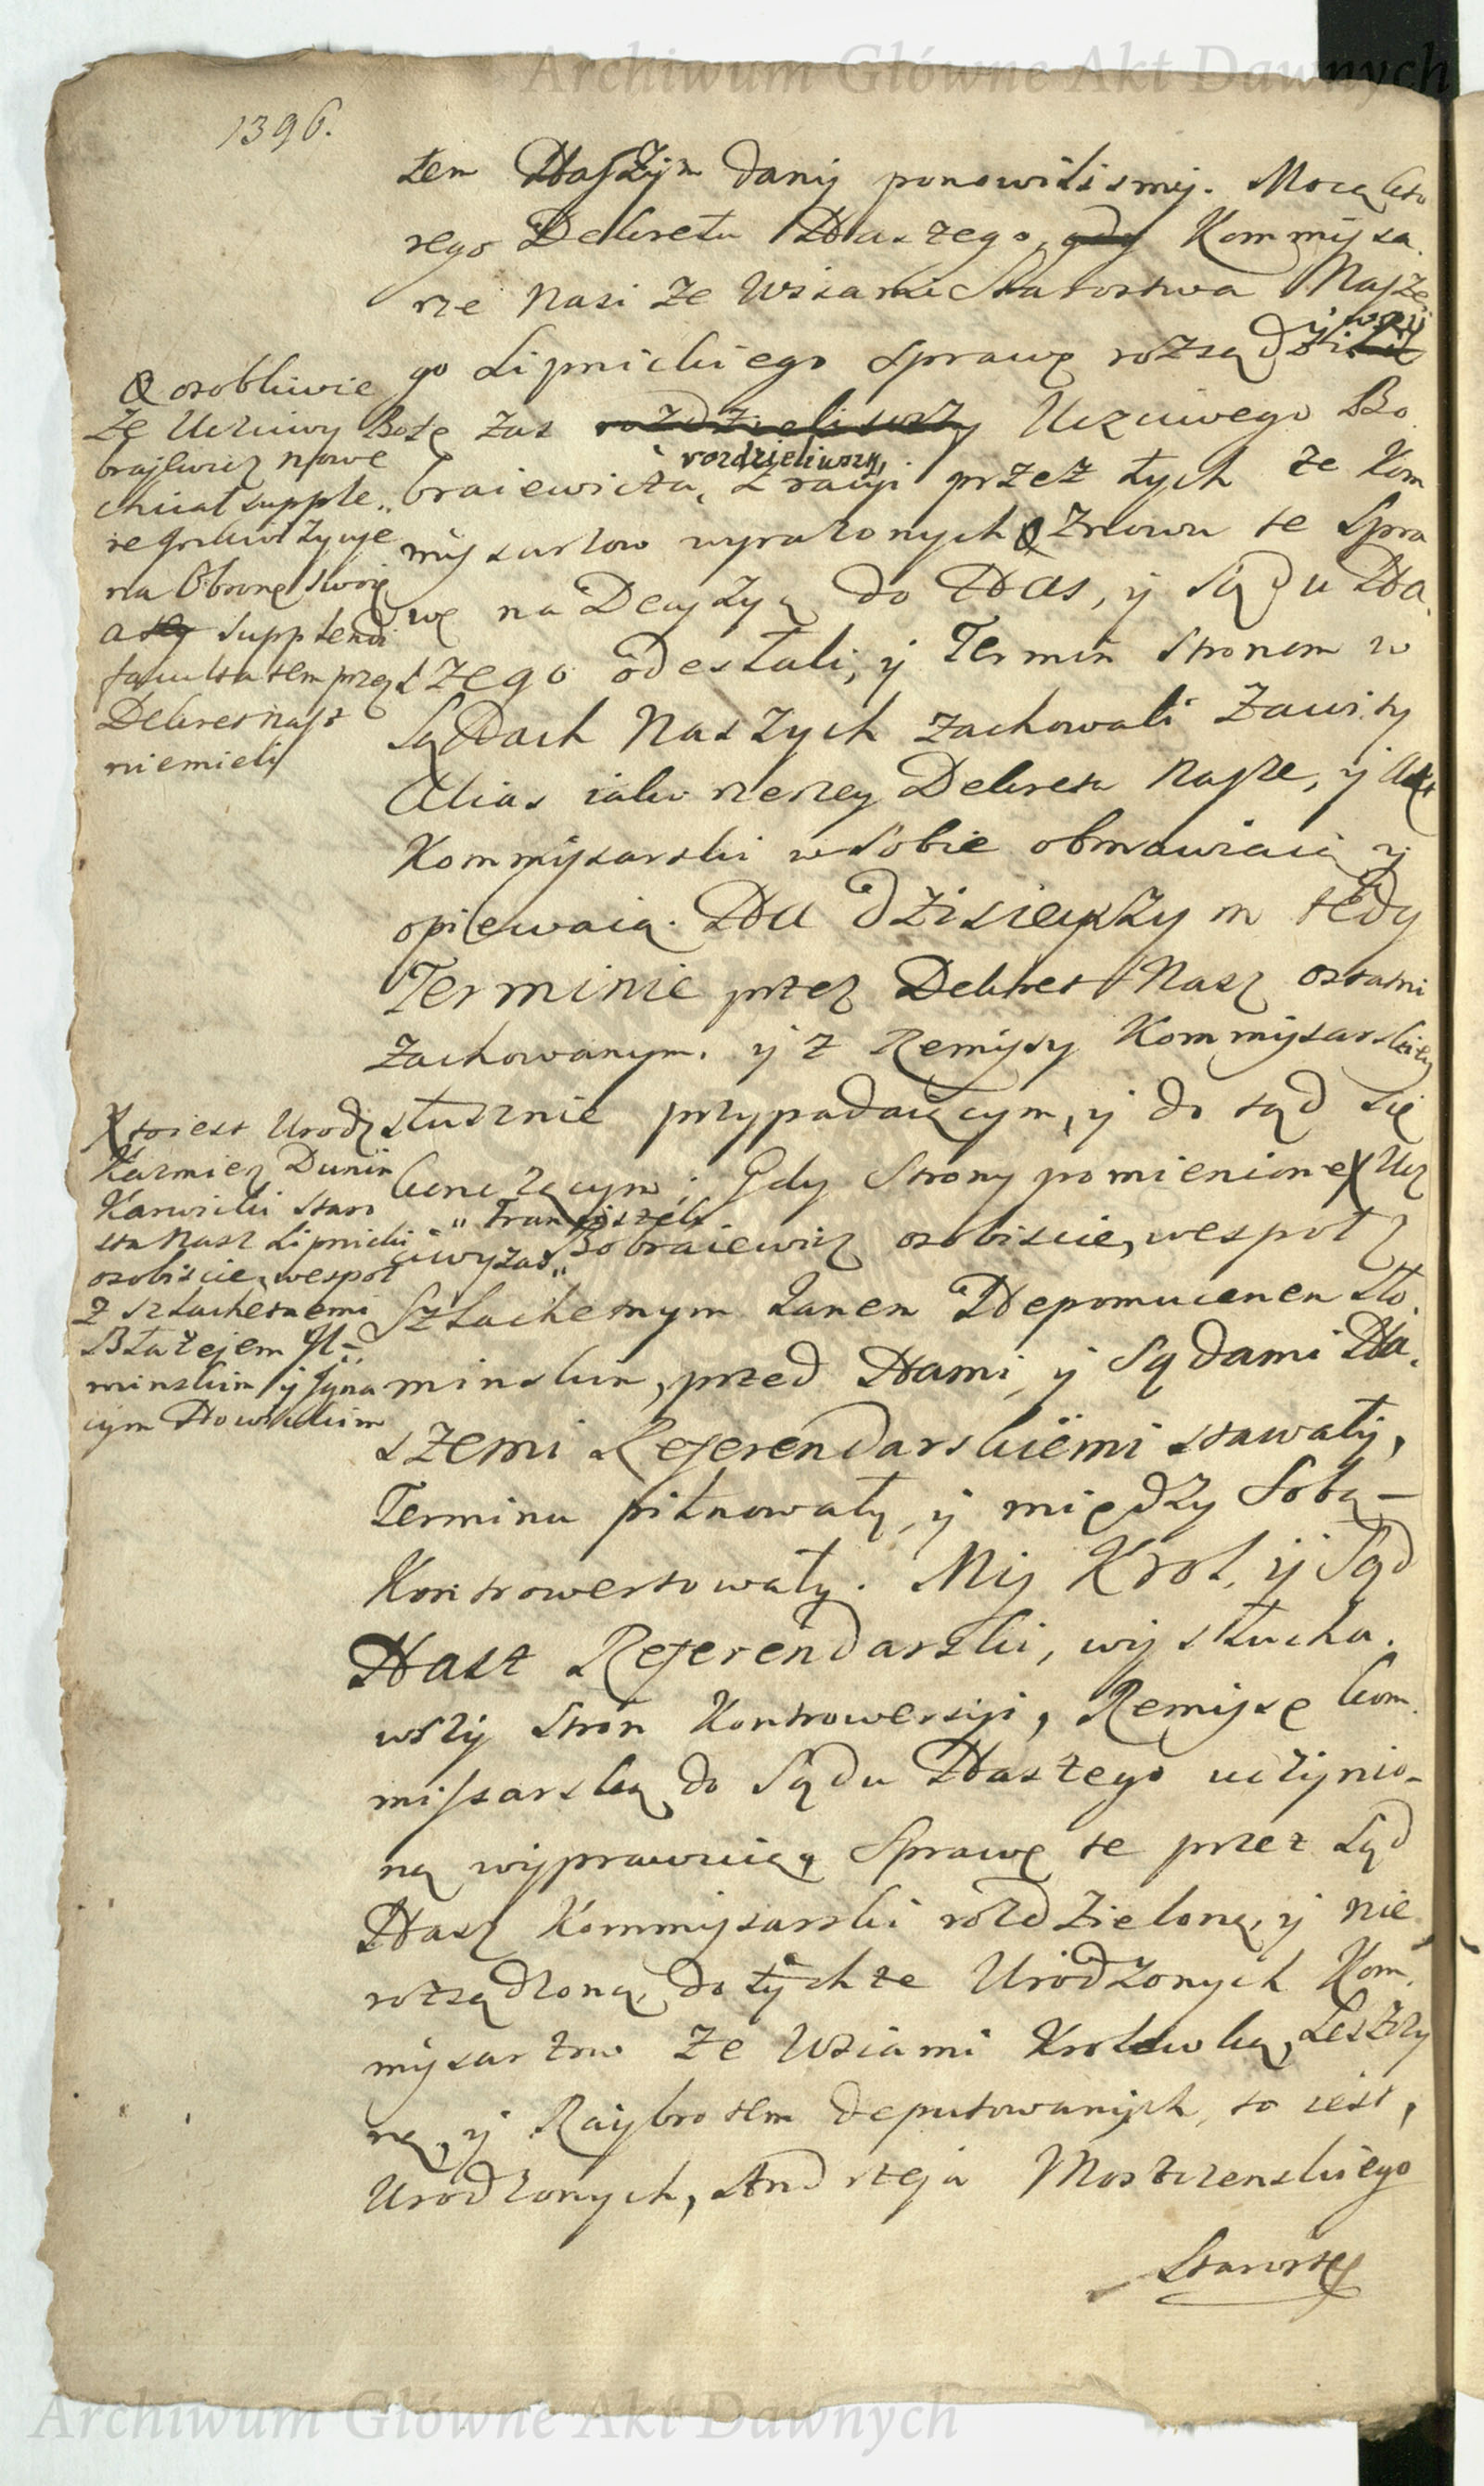 Archiwum Główne Akt Dawnych
1396.
tem Naszym dany ponowilismy. Mocą kto
rego Dekretu Naszego, gdy Kommysa
rze Nasi ze Wsiami Starostwa Nasze
go Lipnickiego Sprawę rozsądzili
Botę zas rozdzieliwszy Uczciwego Bo
rozdzieliwszy,
braiewicza, z racyi przez tych ze Kom
mysarzow wyrażonych znowu te Spra
wę na Decyzyą do Nas, y Sądu Na
szego odesłali, y Termin Stronom w
Sądach Naszych zachowali Zawity
Alias iako rzeczey Dekreta Nasze, y Akt
Kommysarski w Sobie obmawiaią y
opiewaią. Na dzisieyszym tedy
Terminie przez Dekret Nasz ostatni
zachowanym. y z Remisy Kommysarskiey
słusznie przypadaiącym, y do sąd się
kenczącym: Gdy Strony pomienione Ucz
" Franciszek
ciwy zas " Bobraiewicz osobiscie, wespoł z
Szlachetnym Janem Nepomucenem Sło
minskim, przed Nami, y Sądami Na
szemi Referendarskiemi stawały,
Terminu pilnowały, y między Sobą
Kontrowertowały. My Krol, y Sąd
Nasz Referendarski, wysłucha
wszy Stron Kontrowersyi, Remisę kom
missarską do Sądu Naszego uczynio-
ną wyprawuią, Sprawę te przez Sąd
Nasz Kommysarski rozdzieloną, y nie
rozsądzoną, do tychze Urodzonych Kom
mysarzow ze Wsiami Krolowką, Leszczy
ną, y Raybrotem deputowanych, to iest,
Urodzonych, Andrzeja Moszczenskiego
Starostę
osobliwie
Ze Uczciwy Bo
brajewicz nowe
chciał supple
re
na Obronę swoię
a supplendi
facultatem przez
Dekret nasz
niemieli
to iest Urodz
Kazmierz Dunin
Karwicki Staro
sta Nasz Lipnicki
osobiscie, wespoł
z Szlachetnemi
Błażejem Sł
minskim y Igna
cym Nowickim
Archiwum Główne Akt Dawnych